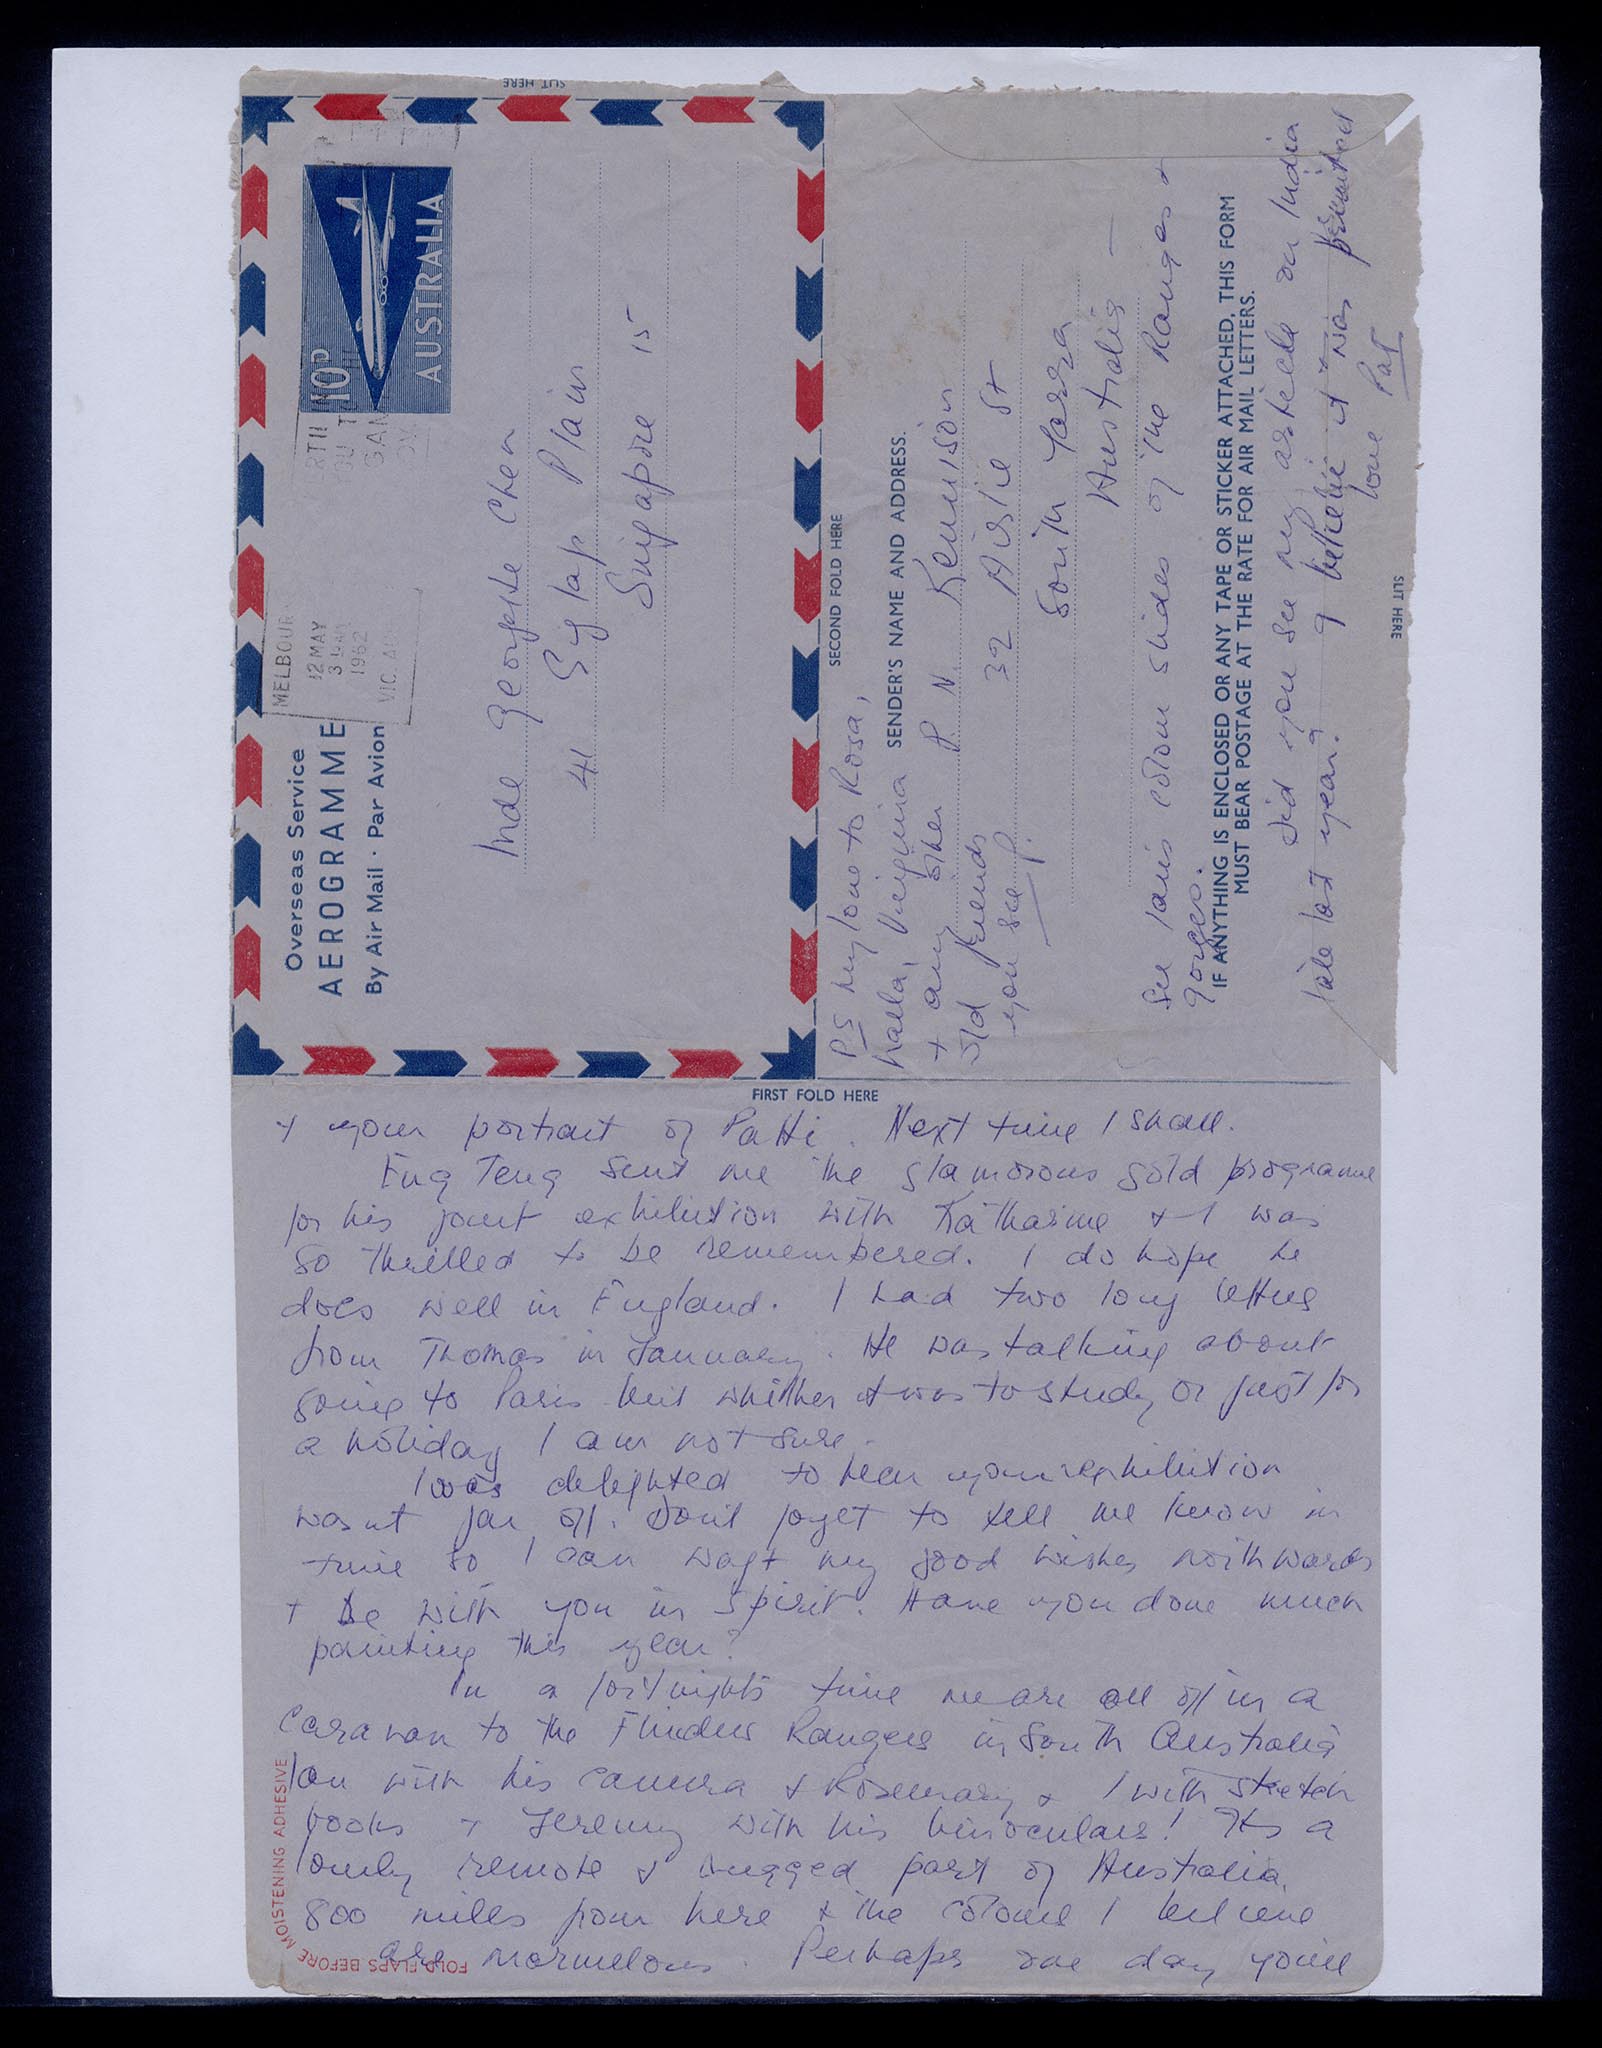 SLIT HERE
Overseas Service
AEROGRAMME
By Air Mail · Par Avion
MELBOUR
12 MAY
3
1962
VIC. AUS
10D
AUSTRALIA
Mde Georgette Chen
41 Siglap Plain
Singapore 15
SECOND FOLD HERE
SENDER'S NAME AND ADDRESS.
P. N. Kennison
32 Airlie St
South Yarra
Australia —
PS my love to Rosa,
+ any other
old friends
you see P.
FIRST FOLD HERE
+ your portrait of Patti. Next time I shall.
Eng Teng sent me the glamorous gold programme
for his joint exhibition with Katharine + I was
so thrilled to be remembered. I do hope he
does well in England. I had two long letters
from Thomas in January. He was talking about
going to Paris but whether it was to study or just for
a holiday I am not sure.
I was delighted to hear your exhibition
wasnt far off. Dont forget to tell me know in
time so I can waft my good wishes northwards
+ be with you in spirit. Have you done much
painting this year?
In a fortnights time we are all off in a
caravan to the Flinders Ranges in South Australia
Ian with his camera + Rosemary + I with sketch
books + Jeremy with his binoculars! Its a
lonely remote + rugged part of Australia,
800 miles from here + the colours I believe
are marvellous. Perhaps one day you'll
FOLD FLAPS BEFORE MOISTENING ADHESIVE
see Ians colour slides of the Ranges +
gorges.
IF ANYTHING IS ENCLOSED OR ANY TAPE OR STICKER ATTACHED, THIS FORM
MUST BEAR POSTAGE AT THE RATE FOR AIR MAIL LETTERS.
Did you see my article on India
late last year? I believe it was printed
love Pat
SLIT HERE